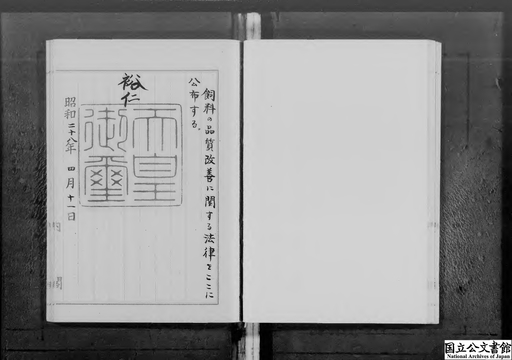 飼料の品質改善に関する法律をここに
公布する。
裕仁
天皇
御璽
昭和二十八年四月十一日
国立公文書館
National Archives of Japan